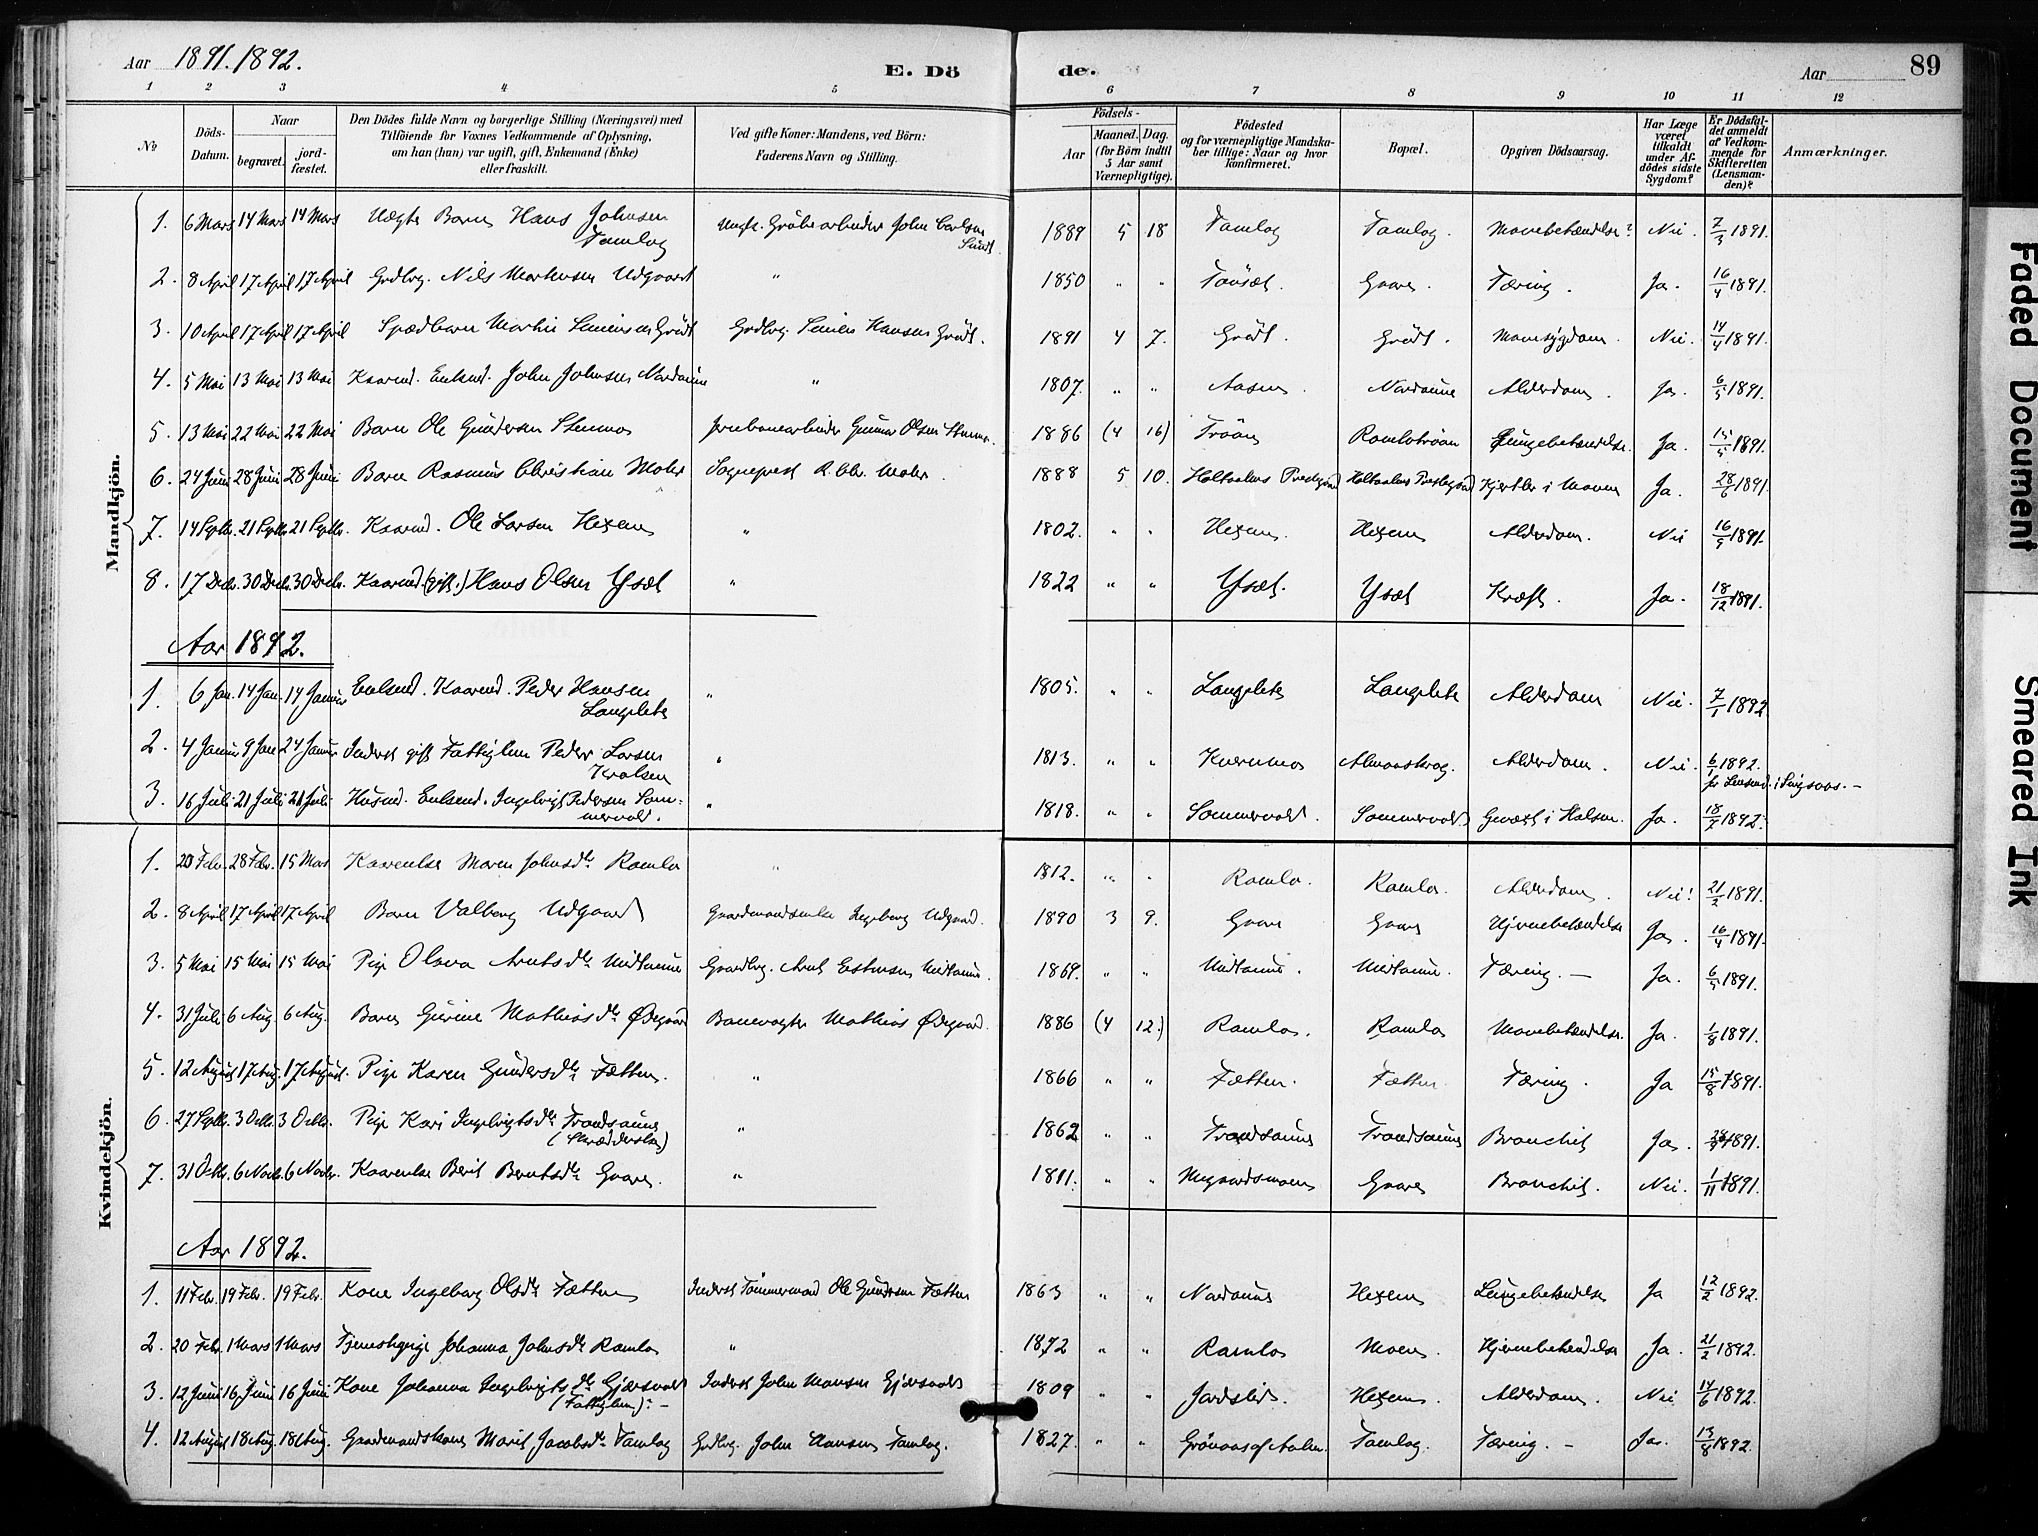 Aar 1891. 1892. E. Dö de. Aar 89
1 2 3 4 5 6 7 8 9 10 11 12
№ Döds-Datum. Naar begravet. jord-fæstet. Den Dödes fulde Navn og borgerlige Stilling (Næringsvei) med Tilföiende for Voxnes Vedkommende af Oplysning, om han (hun) var ugift, gift, Enkemand (Enke) eller fraskilt. Ved gifte Koner: Mandens, ved Börn: Faderens Navn og Stilling. Födsels- Aar Maaned. Dag. (for Börn indtil 5 Aar samt Værnepligtige). Födested og for værnepligtige Mandskaber tillige: Naar og hvor konfirmeret. Bopæl. Opgiven Dödsaarsag. Har Læge været tilkaldt under Afdödes sidste Sygdom? Er Dödsfaldet anmeldt af Vedkommende for Skifteretten (Lensmanden)? Anmærkninger.
Mandkjön.
1. 6 Mars 14 Mars 14 Mars Uægte Barn Hans Johnsen Tamlag Ungk. Grubearbeider John Carlsen 1889 5 18 Tamlag Tamlag. Mavebetændelse? Nei. 7/3 1891.
2. 8 April 17 April 17 April Grdbrg. Nils Mortensen Udgaard " 1850 " " Tönsæt. Gaare. Tæring. Ja. 16/4 1891.
3. 10 April 17 April 17 April Spædbarn Martin Grödt Grdbrg. Hansen Grödt. 1891 4 7. Grödt. Grödt. Mavesygdom. Nei. 14/4 1891.
4. 5 Mai 13 Mai 13 Mai Kaarmd. Enkmd. John Johnsen Nordaune " 1807. " " Aasen. Nordaune Alderdom. Ja. 6/5 1891.
5. 13 Mai 22 Mai 22 Mai Barn Ole Gundersen Stenmo Jernbanearbeider Gunnar Olsen 1886 (4 16) Tröan Ramlotröan Lungebetændelse. Ja. 15/5 1891.
6. 24 Juni 28 Juni 28 Juni Barn Rasmus Christian Mohr Sogneprest R. Chr. Mohr. 1888 5 10. Holtaalens Prestegaard Holtaalens Prestegaard Kjertler i Maven Ja. 28/6 1891.
7. 14 Septbr. 21 Septbr. 21 Septbr. Kaarmd. Ole Larsen Hexem " 1802. " " Hexem. Hexem Alderdom. Nei 16/9 1891.
8. 17 Decbr. 30 Decbr. 30 Decbr. Kaarmd. (gift.) Hans Olsen Ysæt " 1822 " " Ysæt. Ysæt Kræft. Ja. 18/12 1891.
Aar 1892.
1. 6 Jan. 14 Jan. 14 Januar Enkemd. Kaarmd. Peder Hansen Langlete " 1805. " " Langlete Langlete Alderdom Nei. 7/1 1892
2. 4 Januar 9 Jan 24 Januar Inderst gift Fattiglem Peder Larsen " 1813. " " Kvernmo Almaaskrog. Alderdom. Nei. 6/1 1892.
for Lensmd. i Singsaas.—
3. 16 Juli 21 Juli 21 Juli Husmd. Enkemd. Ingebrigt Pedersen Sommervold. " 1818. " " Sommervold. Sommervold. Gevæxt i Halsen. Ja. 18/7 1892.
Kvindekjön.
1. 20 Febr. 28 Febr. 15 Mars Kaarenke Maren Johnsdtr Ramlo " 1812. " " Ramlo. Ramlo. Alderdom. Nei! 21/2 1891.
2. 8 April 17 April 17 April Barn Valborg Udgaard Gaardmandsenke Ingeborg Udgaard. 1890 3 9. Gaare Gaare Hjernebetændelse Ja. 16/4 1891.
3. 5 Mai 15 Mai 15 Mai Pige Olava Arntsdtr Midtaune Gaardbrg. Arnt Estensen Midtaune. 1869. " " Midtaune. Midtaune. Tæring.— Ja. 6/5 1891.
4. 31 Juli 6 Aug. 6 Aug. Barn Gurine Mathiasdtr Ødegaard Banevogter Mathias Ødegaard. 1886 (4 12.) Ramlo. Ramlo Mavebetændelse. Ja. 1/8 1891.
5. 12 August 17 Aug. 17 August. Pige Karen Gundersdtr Tætten. " 1866 " " Tætten. Tætten Tæring. Ja 15/8 1891.
6. 27 Septbr. 3 Octbr. 3 Octbr. Pige Kari Ingebrigtsdtr Trondsaune " 1862 " " Trondsaune Trondsaune Bronchit Ja. 1891.
7. 31 Octbr. 6 Novbr. 6 Novbr. Kaarenke Berit Berntsdtr Gaare. " 1811. " " Gaare Bronchit. Nei. 1/11 1891.
Aar 1892.
1. 11 Febr. 19 Febr. 19 Febr. Kone Ingeborg Olsdtr Tætten Inderst Tömmermand Ole Gundersen Tætten 1863 " " Nordaune Hexem Lungebetændelse Ja 12/2 1892.
2. 20 Febr. 1 Mars 1 Mars Tjenestepige Johanna Johnsdtr Ramlo " 1872 " " Ramlo Moen. Hjernebetændelse Ja. 21/2 1892.
3. 12 Juni 16 Juni 16 Juni Kone Johanna Ingebrigtsdtr Gjærsvold (Fattiglem).— Inderst John Monsen Gjærsvold 1809 " " Jordslid. Hexem. Alderdom. Nei 14/6 1892.
4. 12 August 18 Aug. 18 Aug. Gaardmandskone Marit Jacobsdtr Tamlag Grdbrg. John Hansen Tamlag. 1827. " " Tamlag. Tæring.— Ja. 13/8 1892.
Faded Document
Smeared Ink